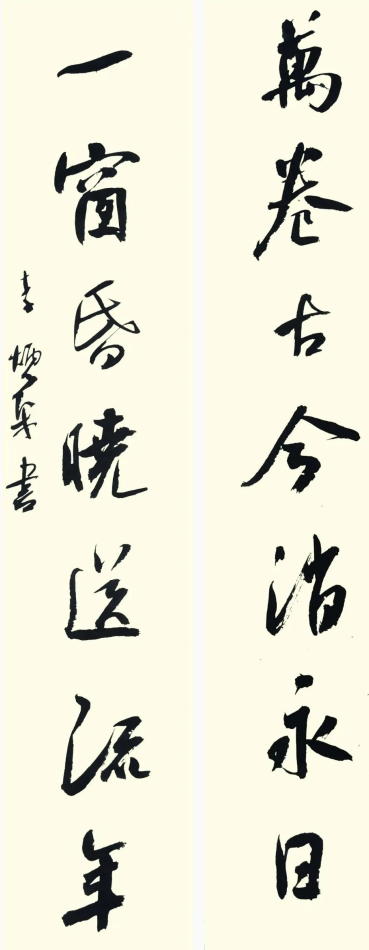 萬卷古今消永日
一窗昏曉送流年